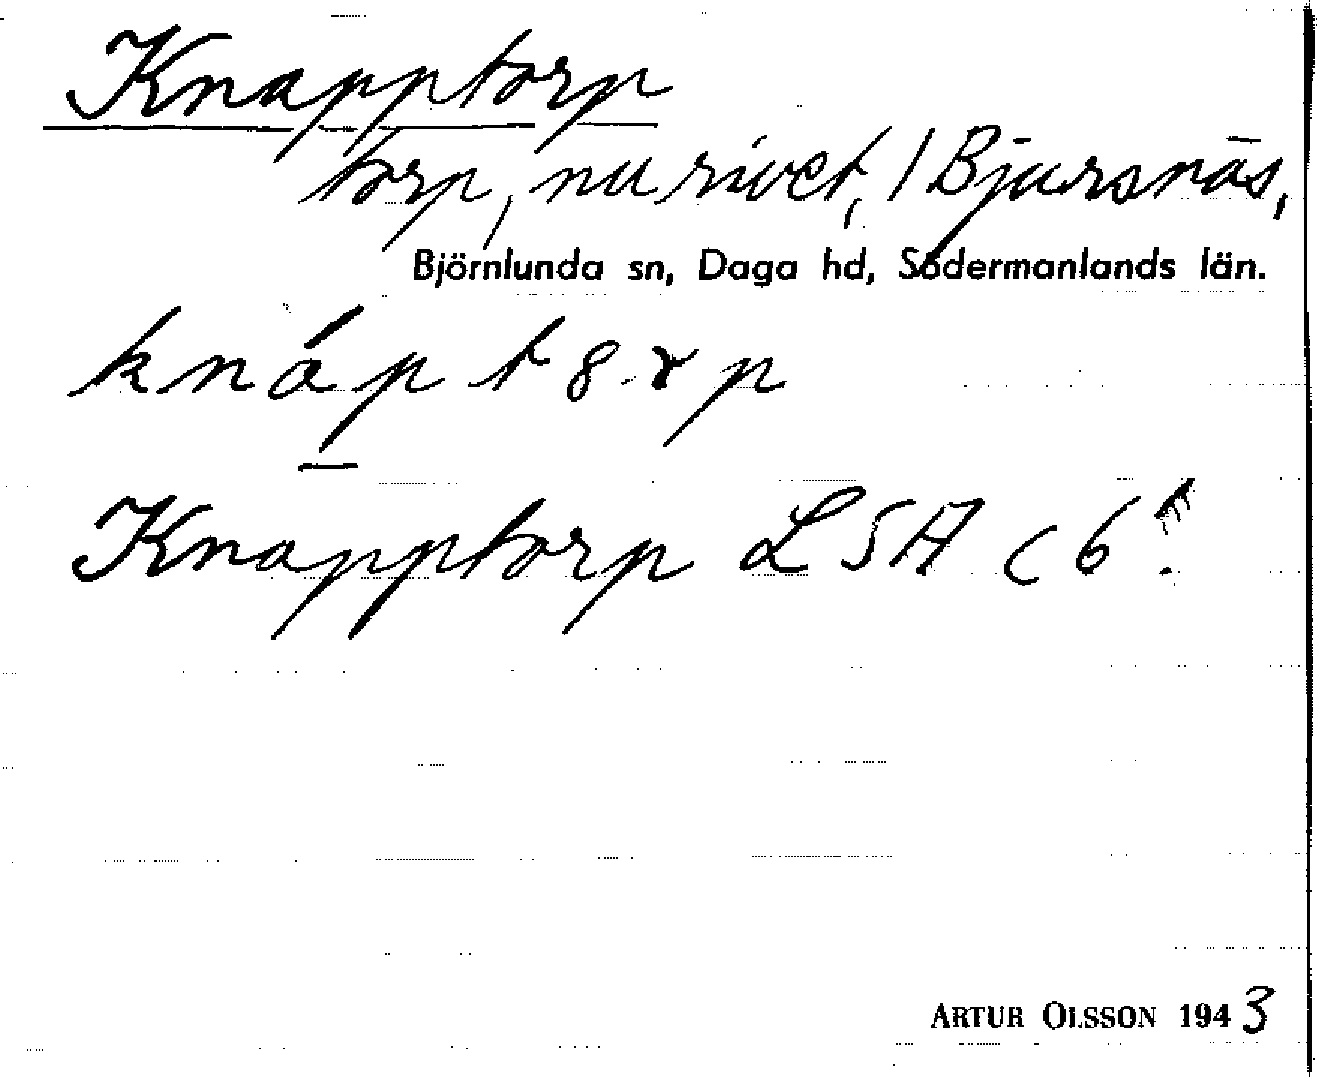 Knapptorp
torp, nu rivet, / Bjursnäs,
Björnlunda sn, Daga hd, Södermanlands län.
knáp t8rp
Knapptorp LSA c6
ARTUR OLSSON 1943